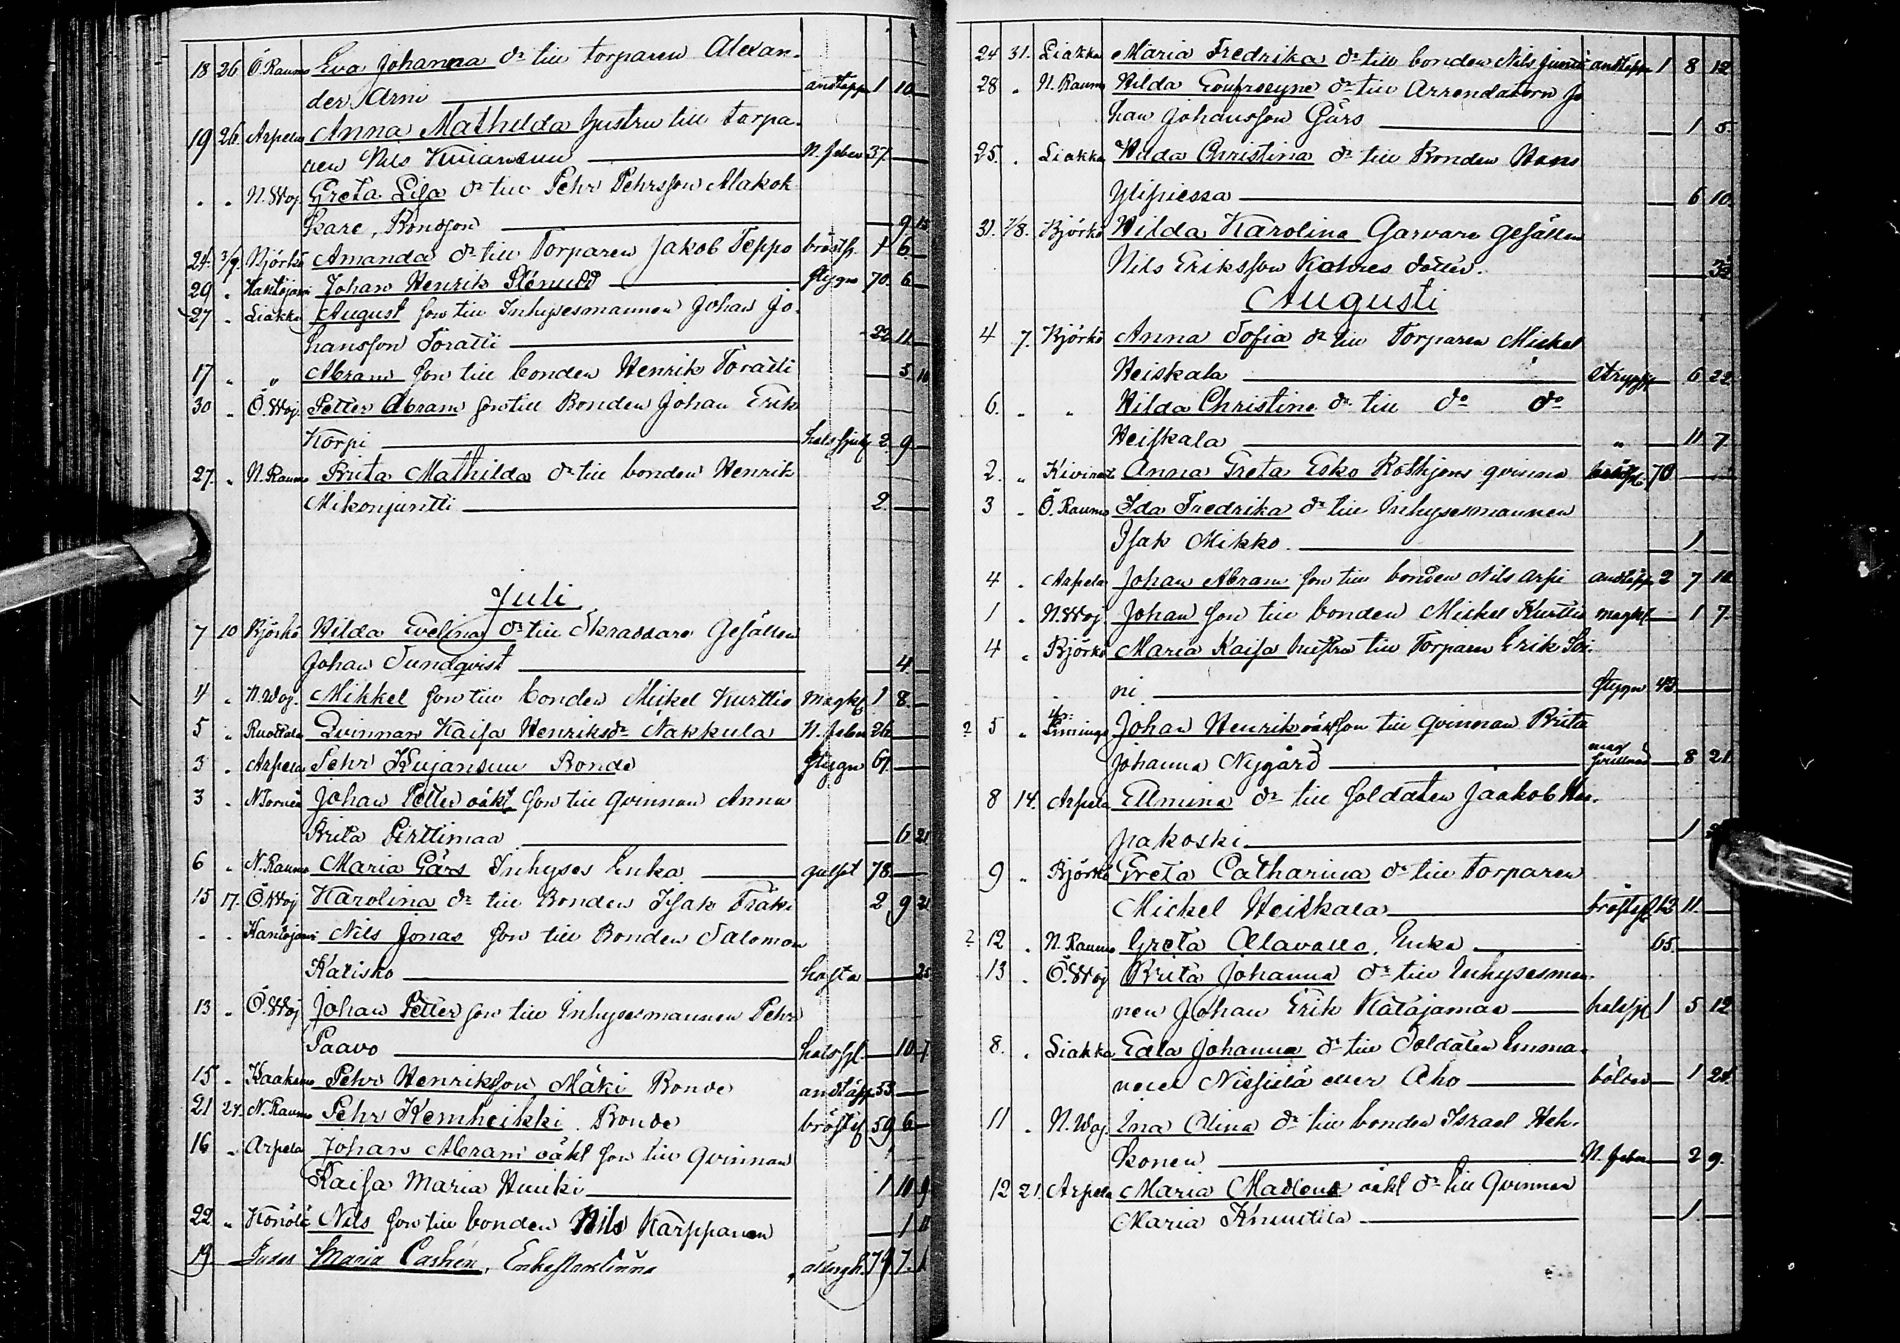 18 26 Ö. Raumo Eva Johanna dr till torparen Alexan-
der Arni andtäppa 1 10
19 26 Arpela Anna Mathilda hustru till torpa-
ren Nils Kuianeuu N. feber 37
" " N. Woj. Greta Lisa dr till Pehr Pehrsson Alakok
kare, Bondson 9 15
24 Björkö Amanda dr till Torparen Jakob Teppo bröstf. 1 6
29 " Johan Henrik Stenudd stygn 70 6
27 " Liakka August son till Inhysesmannen Johan Jo-
hansson Töratti 22 11
17 " " Abram son till bonden Henrik Töratti 3 10
30 " Ö. Woj. Petter Abram son till Bonden Johan Erik
Korpi halssjuk 2 9
27 " N. Raumo Brita Mathilda dr till bonden Henrik
Mikonjuntti 2
Juli
7 10 Björkö Hilda Evelina dr till Skräddare Gesällen
Johan Sundqvist 4
4 " N. Woj. Mikkel son till bonden Mickel Kurttio magkf 1 8
5 " Ruottala Qvinnan Kaisa Henriksdr Nakkula N. feber 26
3 " Arpela Pehr Kujansuu Bonde stygn 67
3 " N Torneå Johan Petter oäkt son till qvinnan Anna
Brita Perttimaa 6 21
6 " N. Raumo Maria Gärs Inhyses Enka gulsot 78
15 17 Ö. Woj Karolina dr till Bonden Isak Fräki 2 9 21
" " Nils Jonas son till Bonden Salomon
Katisko hosta 25
13 " Ö. Woj Johan Petter son till Inhysesmannen Pehr
Paavo halssj. 10 7
15 " Kaakamo Pehr Henriksson Mäki Bonde andtäpp 53
21 24 N. Raumo Pehr Kemheikki Bonde bröstsj 59 6
16 " Arpela Johan Abram oäkt son till Qvinnan
Kaisa Maria Huuki 1 10 9
22 " Könölä Nils son till bonden Nils Karppanen 1 11
19 Maria Casten, ålderdh. 74 7 1
24 31 Liakka Maria Fredrika dr till bonden Nils Junes andtäpp 1 8 12
28 " N. Raumo Hilda Eoufroseyne dr till Arrendatorn Jo
han Johansson Gärs 1 5
25 " Liakka Hilda Christina dr till Bonden Hans
Ylipiessa 6 10
31 7/8 Björkö Hilda Karolina Garvare gesällen
Nils Eriksson Kohres dotter.
Augusti
4 7 Björkö Anna Sofia dr till Torparen Mickel
Heiskala strypsj 6 22
6 " " Hilda Christina dr till do do
Heiskala " 11 7
2 " Anna Greta Esko Rothjons qvinna bröstsj. 70
3 " Ö. Raumo Ida Fredrika dr till Inhysesmannen
Isak Mikko 1
4 " Arpela Johan Abram son till bonden Nils Arpi andtäpp 2 7 10
1 " N. Woj Johan son till bonden Mickel Kurttio magkf 1 7
4 " Björkö Maria Kaisa hustru till Torparen Erik Soi-
ni stygn 43
2 5 " Liminga Johan Henrik oäkt son till qvinnan Brita
Johanna Nygård mag 8 21
8 14 Arpela Elmina dr till soldaten Jaakob Hu-
pakoski 1
9 " Björkö Greta Catharina dr till torparen
Mickel Heiskala bröstsj 12 11
2 12 " N. Raumo Greta Alavalla, Enka 65
13 " Ö. Woj Brita Johanna dr till Inhysesman-
nen Johan Erik Katajamaa halssj 1 5 12
8 " Liakka Edla Johanna dr till Soldaten Emma-
nuel Nissilä eller Aho bölder 1 24
11 " N. Woj. Ena Alina dr till bonden Israel Heh-
konen N. feber 2 9
12 21 Arpela Maria Madlena oäkt dr till Qvinnan
Maria Knuutila 1